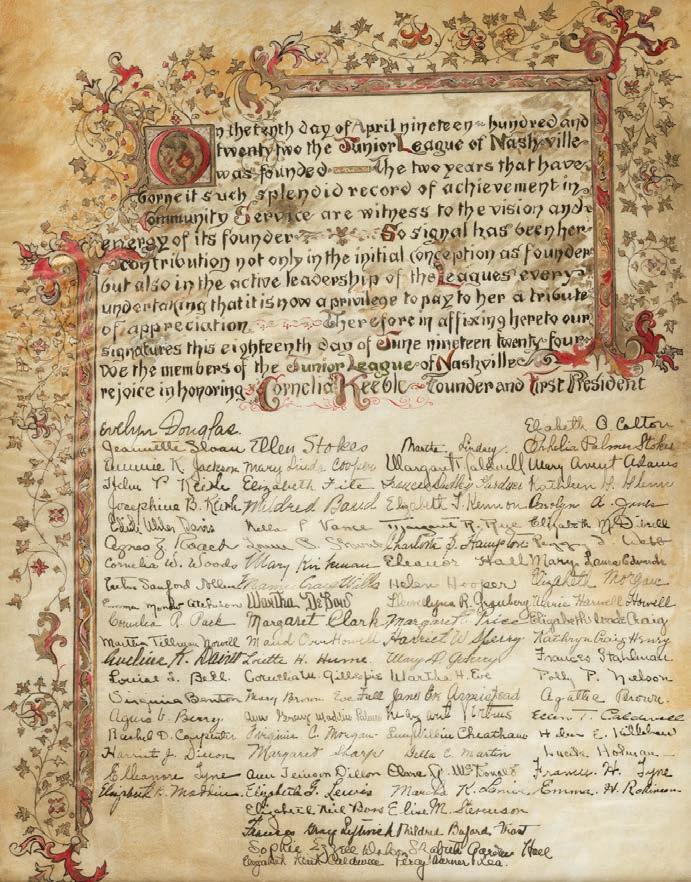 On the tenth day of April nineteen hundred and
twenty two the Junior League of Nashville
was founded The two years that have
borne it such splendid record of achievement in
Community Service are witness to the vision and
energy of its founder So signal has been her
contribution not only in the initial conception as founder
but also in the active leadership of the Leagues every
undertaking that it is now a privilege to pay to her a tribute
of appreciation Therefore in affixing hereto our
signatures this eighteenth day of June nineteen twenty four
We the members of the Junior League of Nashville
rejoice in honoring Cornelia Keeble Founder and First President
Evelyn Douglas. Elizabeth O Colton
Jeannette Sloan Ellen Stokes Martha Lindsey Ophelia Palmer Stokes
Emmie K. Jackson Mary Cooper Margaret Caldwell Mary Adams
Helen P. Keith Elizabeth Fite Frances Kathleen H.
Josephine B. Kirk Mildred Baird Elizabeth T. Kennon A. Jones
Edith Davis Nella P. Vance Margaret R. Elizabeth
Agnes Z. Louise B. Charlotte B. P. Webb
Cornelia W. Woods Mary Kirkman Eleanor Hall Mary Laura Edwards
Sanford Craig Wills Helen Hooper Elizabeth Morgan
Emma Martha DeBow Harwell Howell
Cornelia R. Park Margaret Clark Margaret Price Elizabeth Craig
Martha Tillman Howell Maud Overton Howell Harriet W Sperry Kathryn Craig Henry
Eveline K. Loretta H. Hume Mary D. Frances Stahlman
Louise S. Bell. Cornelia W. Gillespie Martha H. Eve Polly P. Nelson
Virginia Benton Mary Brown Eve Fall Jane Armistead Agatha Brown.
Agnes G. Berry. Ann Maddin Ellen T. Caldwell
Rachel D. Carpenter Virginia C. Morgan Willie Cheatham Helen E.
Harriet J. Dillon Margaret Sharpe Della C. Martin Lucile Holman
Elleanore Tyne Ann Dillon Frances H. Tyne
Elizabeth K. Matthews Elizabeth F. Lewis Martha K. Emma H. Robinson
Elizabeth Neil Elise M. Stevenson
Frances Gray Mildred Buford
Sophie Elizabeth Hall
Elizabeth Caldwell Percy Warner Lea.